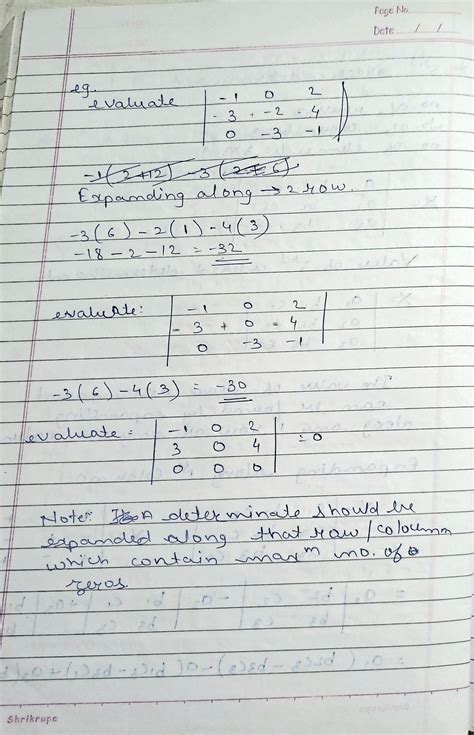 Page No.
Date / /
eg.
evaluate | -1 0 2 |
| - 3 + -2 - 4 |
| 0 -3 -1 |
-1(2+12) - 3(
Expanding along → 2 row.
-3(6) -2(1) -4(3)
-18 -2 -12 = -32
evaluate: | -1 0 2 |
| - 3 + 0 - 4 |
| 0 -3 -1 |
-3(6) -4(3) = -30
evaluate = | -1 0 2 |
| 3 0 4 | = 0
| 0 0 0 |
Note: A determinate should be
expanded along that row/coloumn
which contain maxᵐ no. of
zeros
Shrikrupa